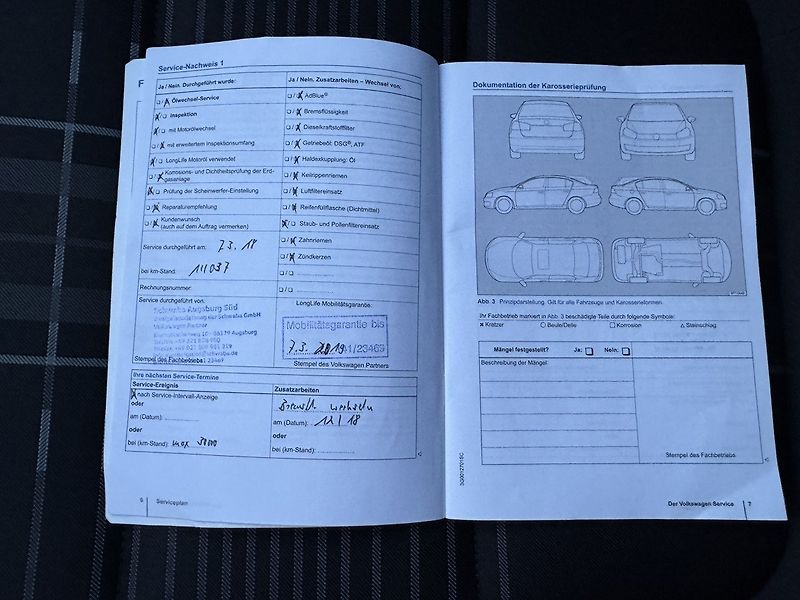 F
Service-Nachweis 1
Ja / Nein. Durchgeführt wurde:
Ölwechsel-Service
Inspektion
mit Motorölwechsel
mit erweitertem Inspektionsumfang
LongLife Motoröl verwendet
Korrosions- und Dichtheitsprüfung der Erd-
gasanlage
Prüfung der Scheinwerfer-Einstellung
Reparaturempfehlung
Kundenwunsch
(auch auf dem Auftrag vermerken)
Service durchgeführt am: 7.3.18
bei km-Stand:
Rechnungsnummer:
Service durchgeführt von:
Schwaba Augsburg Süd
der Schwaba GmbH
Volkswagen Partner
86179 Augsburg
Stempel des Fachbetriebs
Ja / Nein. Zusatzarbeiten – Wechsel von:
AdBlue®
Bremsflüssigkeit
Dieselkraftstofffilter
Getriebeöl: DSG®, ATF
Haldexkupplung: Öl
Keilrippenriemen
Luftfiltereinsatz
Reifenfüllflasche (Dichtmittel)
Staub- und Pollenfiltereinsatz
Zahnriemen
Zündkerzen
LongLife Mobilitätsgarantie:
Mobilitätsgarantie bis
7.3. 2019 /23469
Stempel des Volkswagen Partners
Ihre nächsten Service-Termine
Service-Ereignis
nach Service-Intervall-Anzeige
oder
am (Datum):
oder
bei (km-Stand): max
Zusatzarbeiten
wechseln
am (Datum):
oder
bei (km-Stand):
6 Serviceplan
Dokumentation der Karosserieprüfung
Abb. 3 Prinzipdarstellung. Gilt für alle Fahrzeuge und Karosserieformen.
Ihr Fachbetrieb markiert in Abb. 3 beschädigte Teile durch folgende Symbole:
× Kratzer ○ Beule/Delle □ Korrosion △ Steinschlag
Mängel festgestellt? Ja: Nein:
Beschreibung der Mängel:
Stempel des Fachbetriebs
Der Volkswagen Service 7